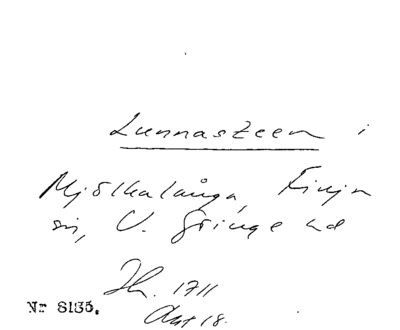 Lunnasteen i
Mjölkalånga, Finja
sn, V. Göinge hd
Jh. 1711
Nr 8135.